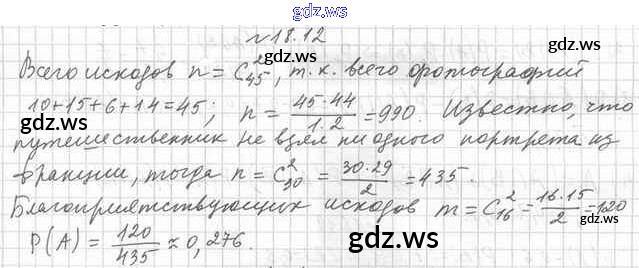 gdz.ws
№18.12
Всего исходов n = C²₄₅, т.к. всего фотографий
10+15+6+14=45; n = 45·44/1·2 = 990. Известно, что
gdz.ws
gdz.ws
путешественник не взял ни одного портрета из
Франции, тогда n = C²₃₀ = 30·29/2 = 435.
Благоприятствующих исходов m = C²₁₆ = 16·15/2 = 120
P(A) = 120/435 ≈ 0,276.
gdz.ws
gdz.ws